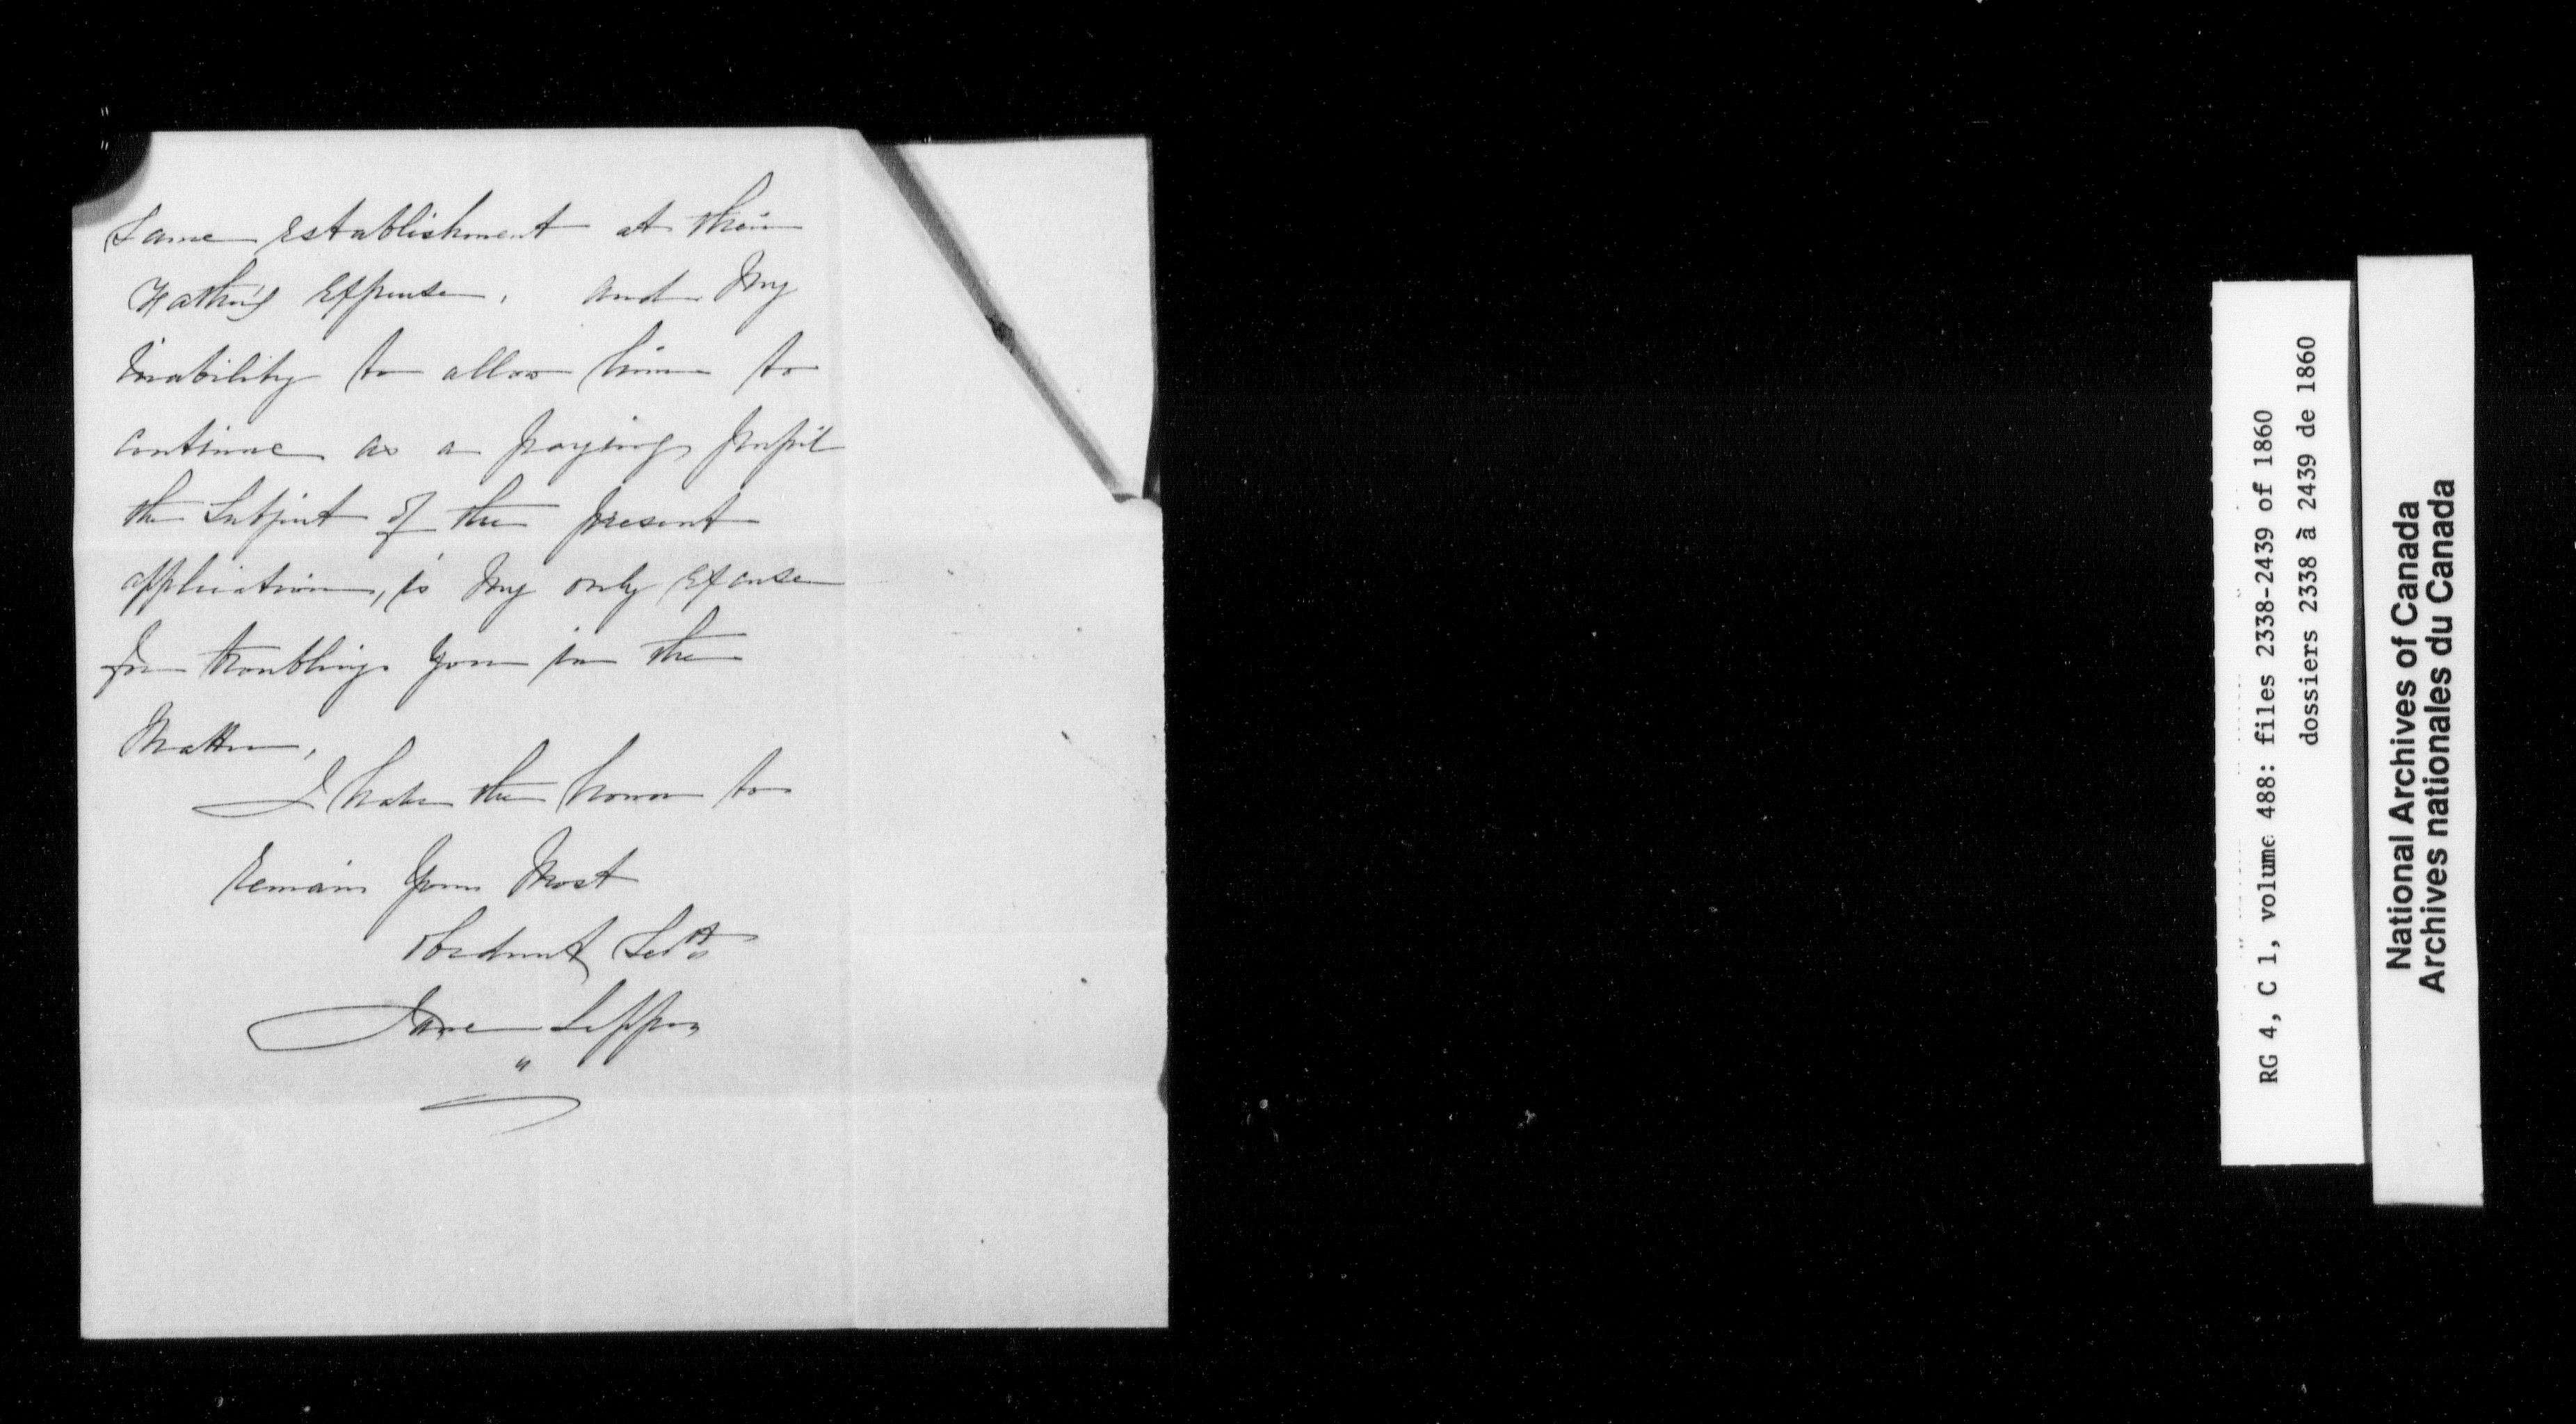 Same establishment at their
Father's Expense, and My
inability to allow him to
continue as a paying pupil
the Subject of the present
application, is My only Excuse
for troubling You in the
Matter,
I have the honor to
remain Your Most
Obedient Servt
Jane
RG 4, C 1, volume 488: files 2338-2439 of 1860
dossiers 2338 à 2439 de 1860
National Archives of Canada
Archives nationales du Canada